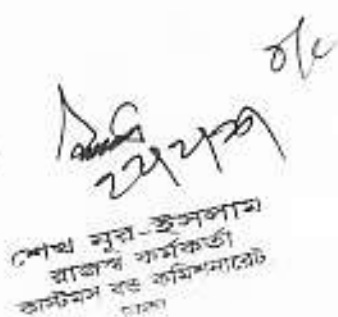 o/c
শেখ নুর-ইসলাম
রাজস্ব কর্মকর্তা
কাস্টমস বন্ড কমিশনারেট
ঢাকা